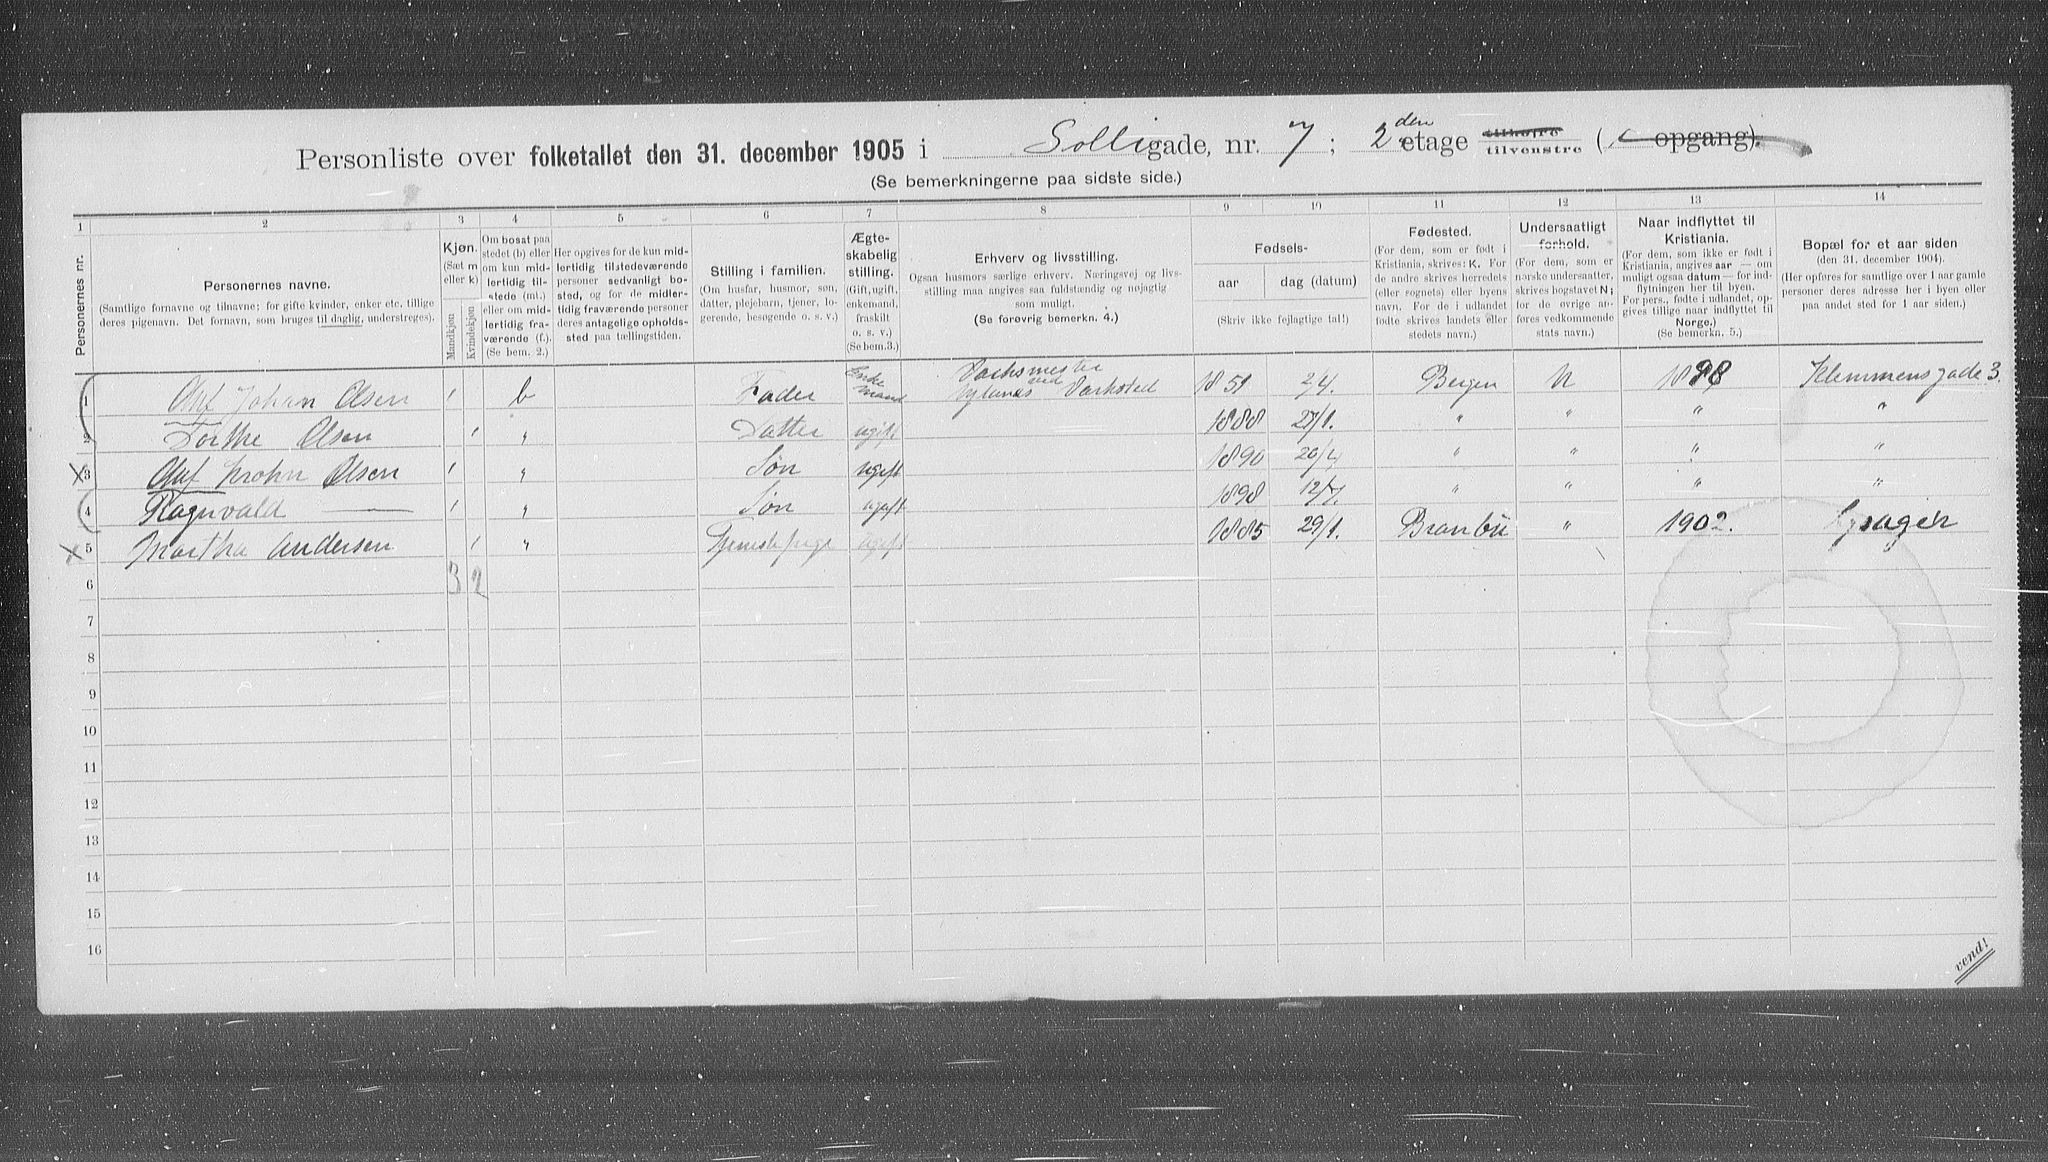 Personliste over folketallet den 31. december 1905 i Solligade, nr. 7; 2den etage tilhøjre tilvenstre ( opgang).
(Se bemerkningerne paa sidste side.)
1 2 3 4 5 6 7 8 9 10 11 12 13 14
Personernes nr.
Personernes navne.
(Samtlige fornavne og tilnavne; for gifte kvinder, enker etc. tillige
deres pigenavn. Det fornavn, som bruges til daglig, understreges).
Kjøn.
(Sæt m
eller k)
Mandkjøn
Kvindekjøn
Om bosat paa
stedet (b) eller
om kun mid-
lertidig til-
stede (mt.)
eller om mid-
lertidig fra-
værende (f.).
(Se bem. 2.)
Her opgives for de kun mid-
lertidig tilstedeværende
personer sedvanligt bo-
sted, og for de midler-
tidig fraværende personer
deres antagelige opholds-
sted paa tællingstiden.
Stilling i familien.
(Om husfar, husmor, søn,
datter, plejebarn, tjener, lo-
gerende, besøgende o. s. v.)
Ægte-
skabelig
stilling.
(Gift, ugift,
enkemand,
fraskilt
o. s. v.)
(Se bem.3.)
Erhverv og livsstilling.
Ogsaa husmors særlige erhverv. Næringsvej og livs-
stilling maa angives saa fuldstændig og nøjagtig
som muligt.
(Se forøvrig bemerkn. 4.)
Fødsels-
aar dag (datum)
(Skriv ikke fejlagtige tal!)
Fødested.
(For dem, som er født i
Kristiania, skrives: K. For
de andre skrives herredets
(eller sognets) eller byens
navn. For de i udlandet
fødte skrives landets eller
stedets navn.)
Undersaatligt
forhold.
(For dem, som er
norske undersaatter,
skrives bogstavet N;
for de øvrige an-
føres vedkommende
stats navn.)
Naar indflyttet til
Kristiania.
(For dem, som ikke er født i
Kristiania, angives aar — om
muligt ogsaa datum — for ind-
flytningen her til byen.
For pers., fødte i udlandet, op-
gives tillige naar indflyttet til
Norge.)
(Se bemerkn. 5.)
Bopæl for et aar siden
(den 31. december 1904).
(Her opføres for samtlige over 1 aar gamle
personer deres adresse her i byen eller
paa andet sted for 1 aar siden.)
1 Olaf Johan Olsen 1 b Fader Enkemand ved Værksted 1851 2/4. Bergen N 1898 Klemmensgade 3.
2 Dorthe Olsen 1 " Datter ugift 1888 27/1. " " " "
3 Olaf Krohn Olsen 1 " Søn ugift 1890 20/4 " " " "
4 Ragnvald — 1 " Søn ugift 1898 12/7. " " " "
5 Martha Andersen 1 " Tjenestepige ugift 1885 29/1. Branbu " 1902.
6 3 2
7
8
9
10
11
12
13
14
15
16
vend!